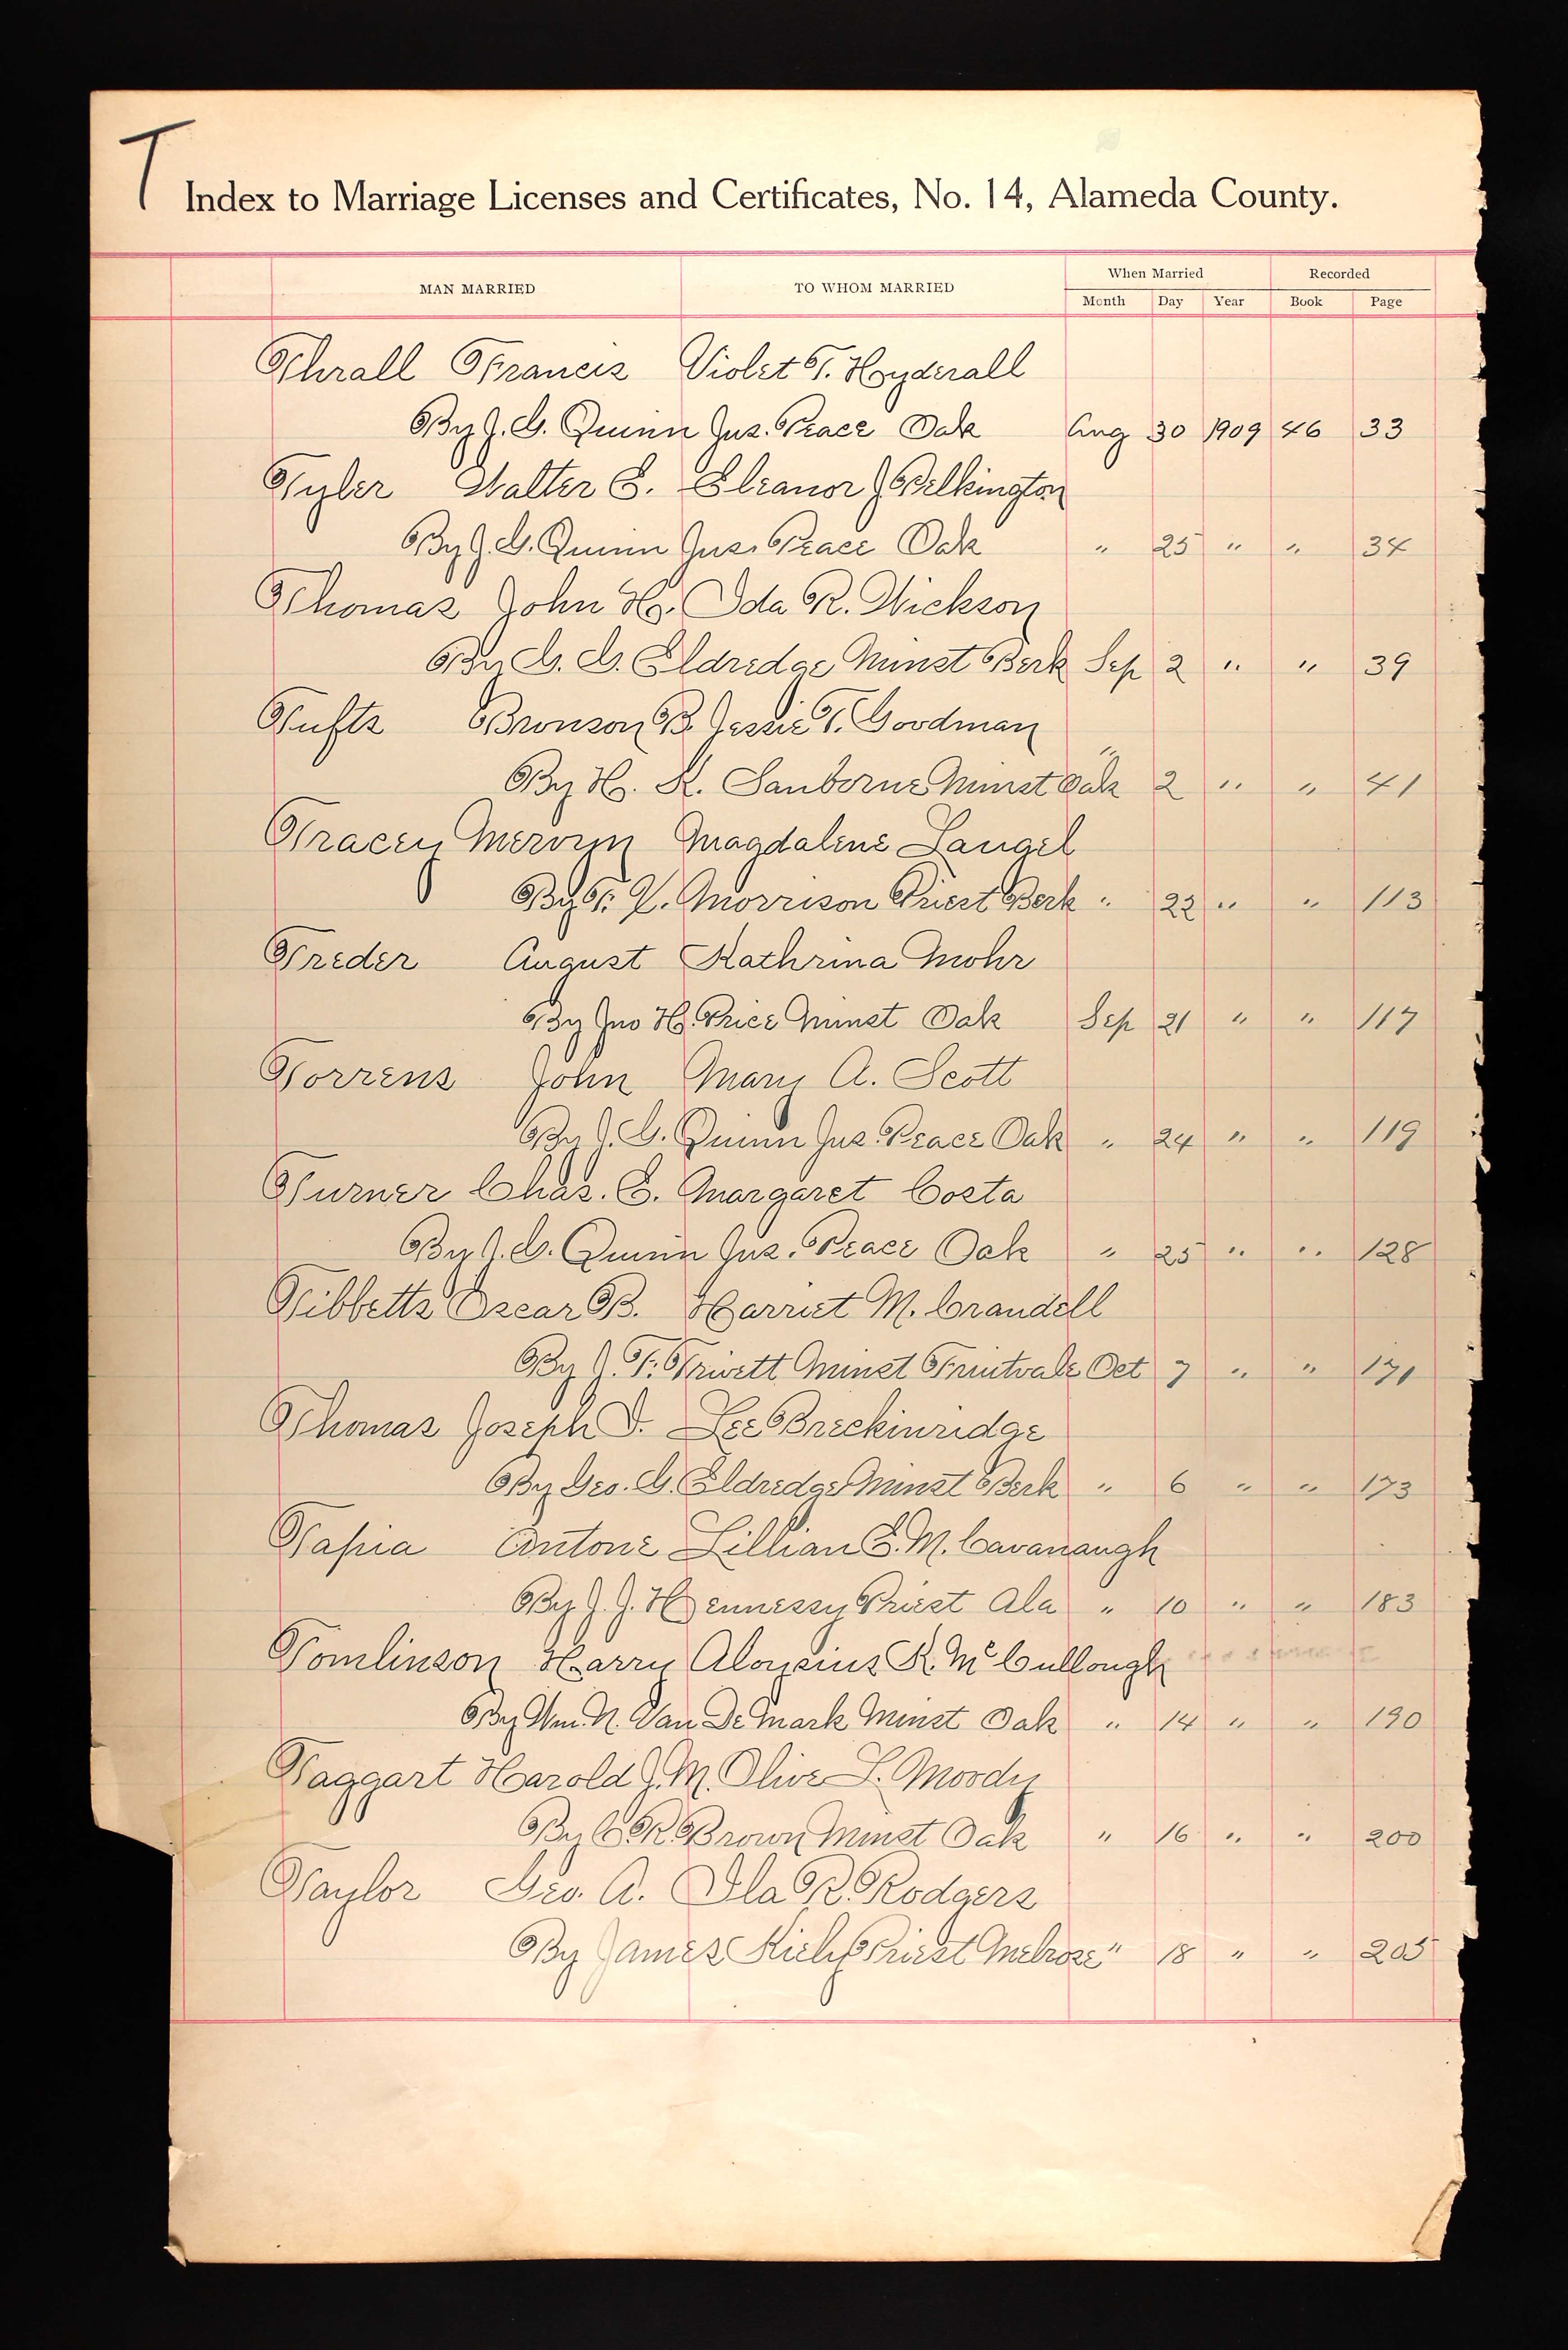 T
Index to Marriage Licenses and Certificates, No. 14, Alameda County.
MAN MARRIED TO WHOM MARRIED When Married Recorded
Month Day Year Book Page
Thrall Francis Violet T. Hoyderall
By J. G. Quinn Jus. Peace Oak Aug 30 1909 46 33
Tyler Walter E. Eleanor J Pilkington
By J. G. Quinn Jus. Peace Oak " 25 " " 34
Thomas John H. Ida R. Wickson
By G. G. Eldredge Minst Berk Sep 2 " " 39
Tufts Bronson B. Jessie T. Goodman
By H. K. Sanborne Minst Oak " 2 " " 41
Tracey Mervyn Magdalene Laugel
By F. X. Morrison Priest Berk " 22 " " 113
Treder August Kathrina Mohr
By Jno H. Price Minst Oak Sep 21 " " 117
Torrens John Mary A. Scott
By J. G. Quinn Jus. Peace Oak " 24 " " 119
Turner Chas. E. Margaret Costa
By J. G. Quinn Jus. Peace Oak " 25 " " 128
Tibbetts Oscar B. Harriet M. Crandell
By J. F. Trivett Minst Fruitvale Oct 7 " " 171
Thomas Joseph D. Lee Breckinridge
By Geo. G. Eldredge Minst Berk " 6 " " 173
Tapia Antone Lillian E. M. Cavanaugh
By J. J. Hennessy Priest Ala " 10 " " 183
Tomlinson Harry Aloysius K. McCullough
By Wm. N. Van De Mark Minst Oak " 14 " " 190
Taggart Harold J. M. Olive L. Moody
By C. R. Brown Minst Oak " 16 " " 200
Taylor Geo. A. Ila R. Rodgers
By James Kiely Priest Melrose " 18 " " 205